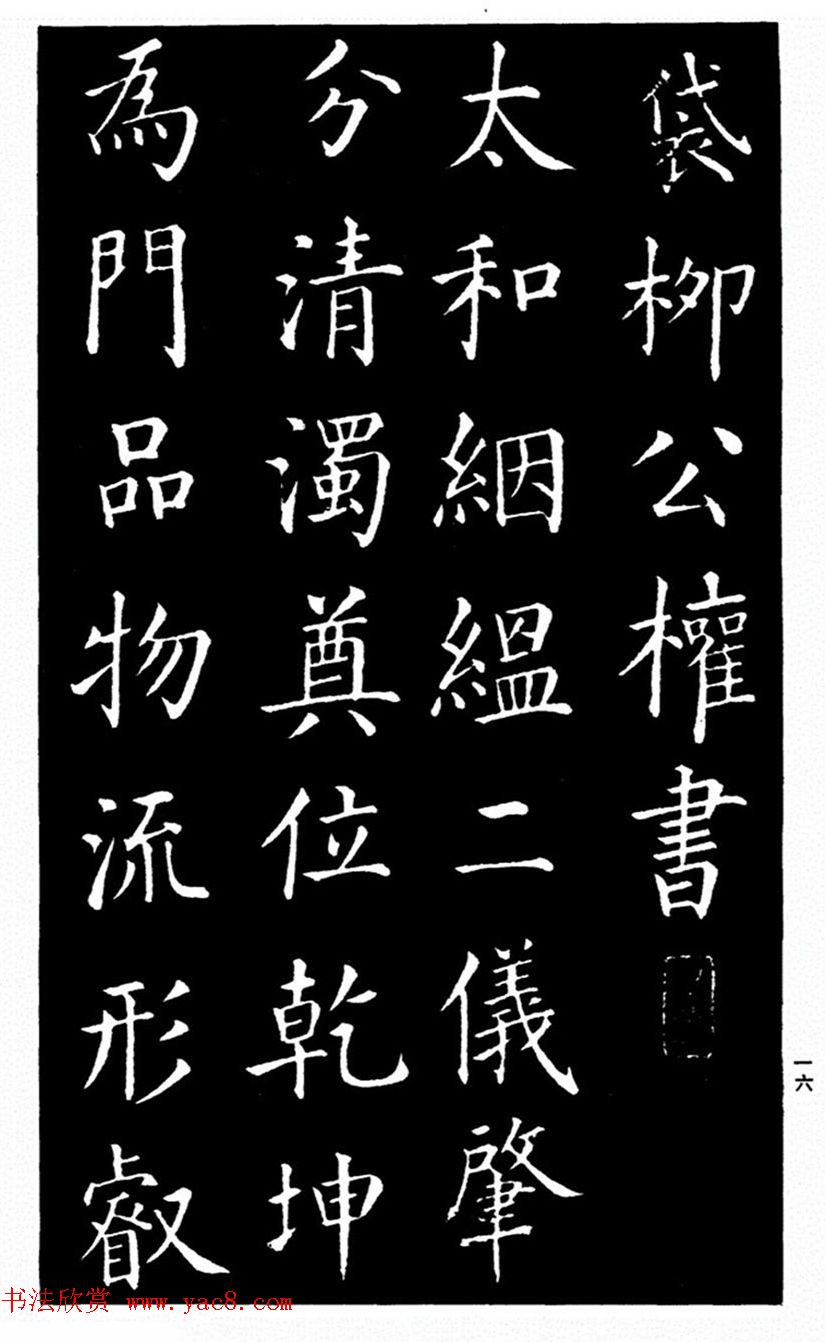 袋柳公權書
太和絪縕二儀肇
分清濁奠位乾坤
為門品物流形叡
一六
书法欣赏 www.yac8.com